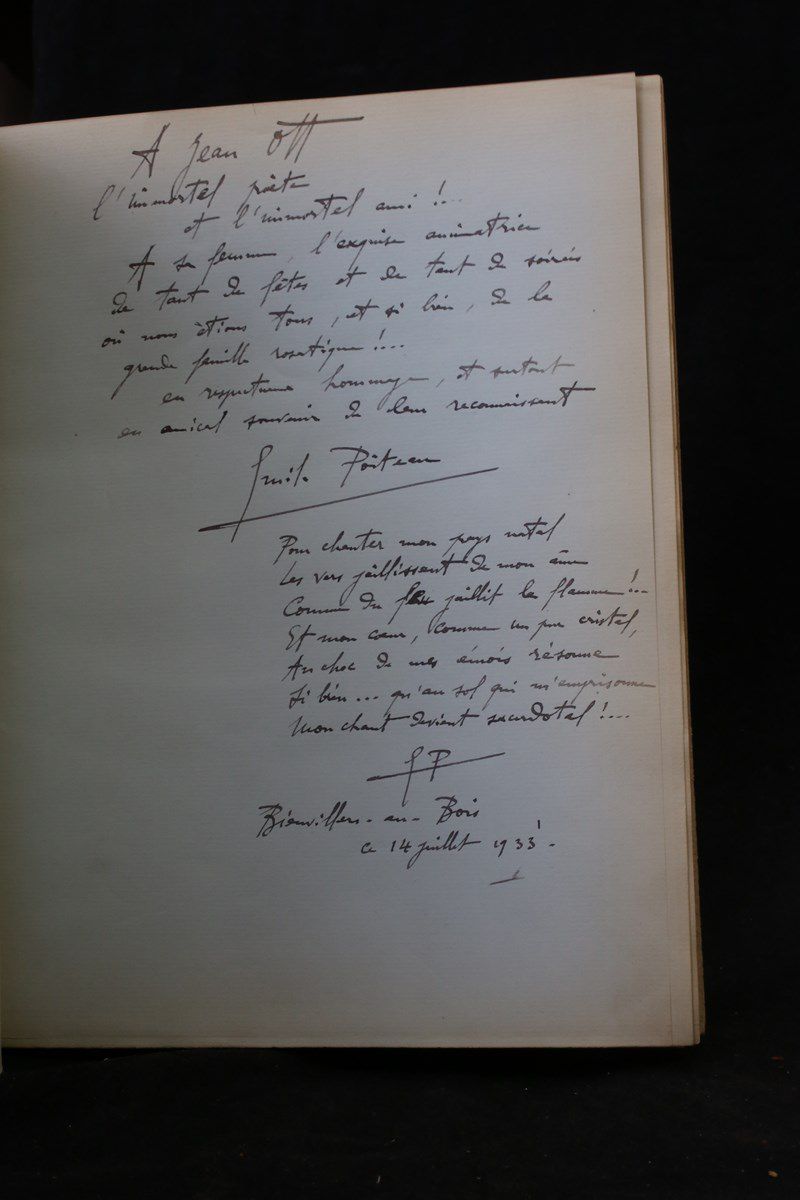 A Jean Ott
l'immortel poète
et l'immortel ami !...
A sa femme, l'exquise animatrice
de tant de fêtes et de tant de soirées
où nous étions tous, et si bien, de la
grande famille rosatique !...
en respectueux hommage, et surtout
en amical souvenir de leur reconnaissant
Emile Poiteau
Pour chanter mon pays natal
Les vers jaillissent de mon âme
Comme du feu jaillit la flamme !...
Et mon cœur, comme un pur cristal,
Au choc de mes émois résonne
Si bien... qu'au sol qui m'emprisonne
Mon chant devient sacerdotal !...
EP
Bienvillers-au-Bois
ce 14 juillet 1933.